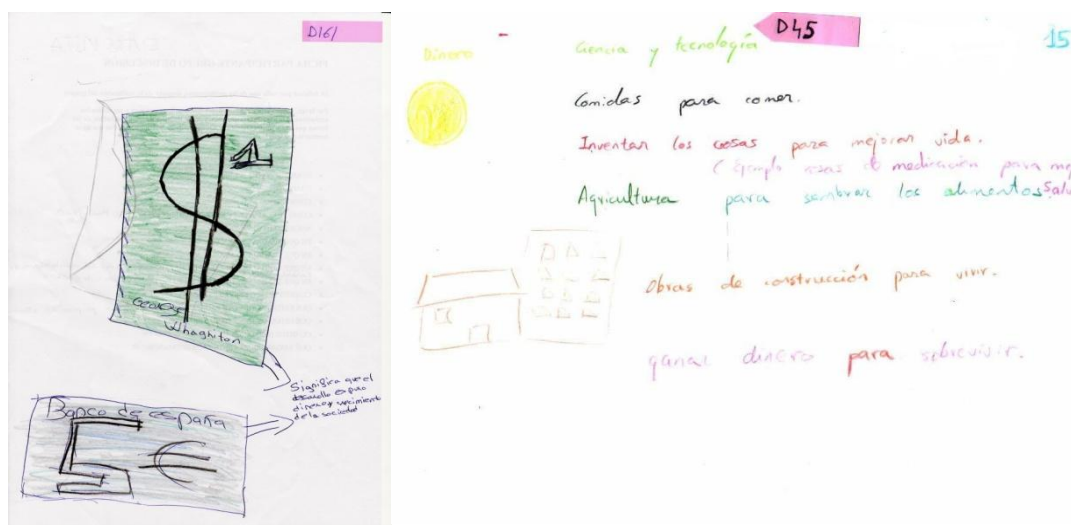 D161
$ 1
George
Whaghiton
Significa que el
desarollo es puro
dinero y crecimiento
de la sociedad
Banco de españa
5 €
D45
15
Dinero
Ciencia y tecnología
Comidas para comer.
Inventar las cosas para mejorar vida.
(Ejemplo cosas de medicación para
Agricultura para sembrar los alimentos
Obras de construcción para vivir.
ganar dinero para sobrevivir.